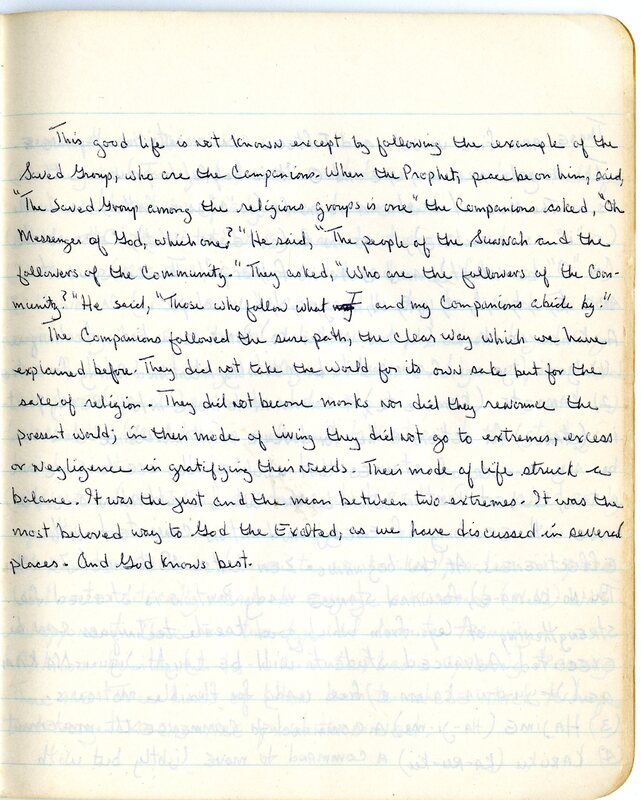 This good life is not known except by following the example of the
Saved Group, who are the Companions. When the Prophet, peace be on him, said,
"The Saved Group among the religious groups is one" the Companions asked, "Oh
Messenger of God, which one?" He said, "The people of the Sunnah and the
followers of the Community." They asked, "Who are the followers of the Com-
munity?" He said, "Those who follow what I and my Companions abide by."
The Companions followed the sure path, the clear way which we have
explained before. They did not take the world for its own sake but for the
sake of religion. They did not become monks nor did they renounce the
present world; in their mode of living they did not go to extremes, excess
or negligence in gratifying their needs. Their mode of life struck a
balance. It was the just and the mean between two extremes. It was the
most beloved way to God the Exalted, as we have discussed in several
places. And God knows best.